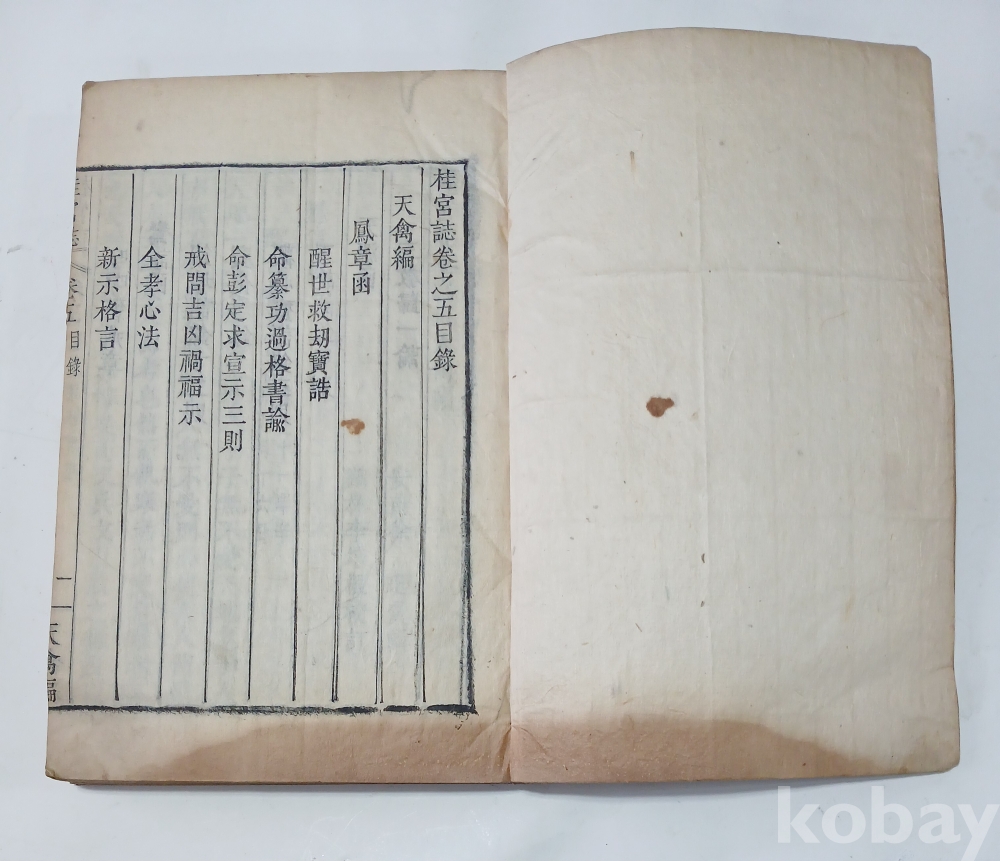 桂宮誌卷之五目錄
天禽編
鳳章函
醒世救刼寶誥
命纂功過格書諭
命彭定求宣示三則
戒問吉凶禍福示
全孝心法
新示格言
桂宮誌 卷五 目錄 二 天禽編
kobay